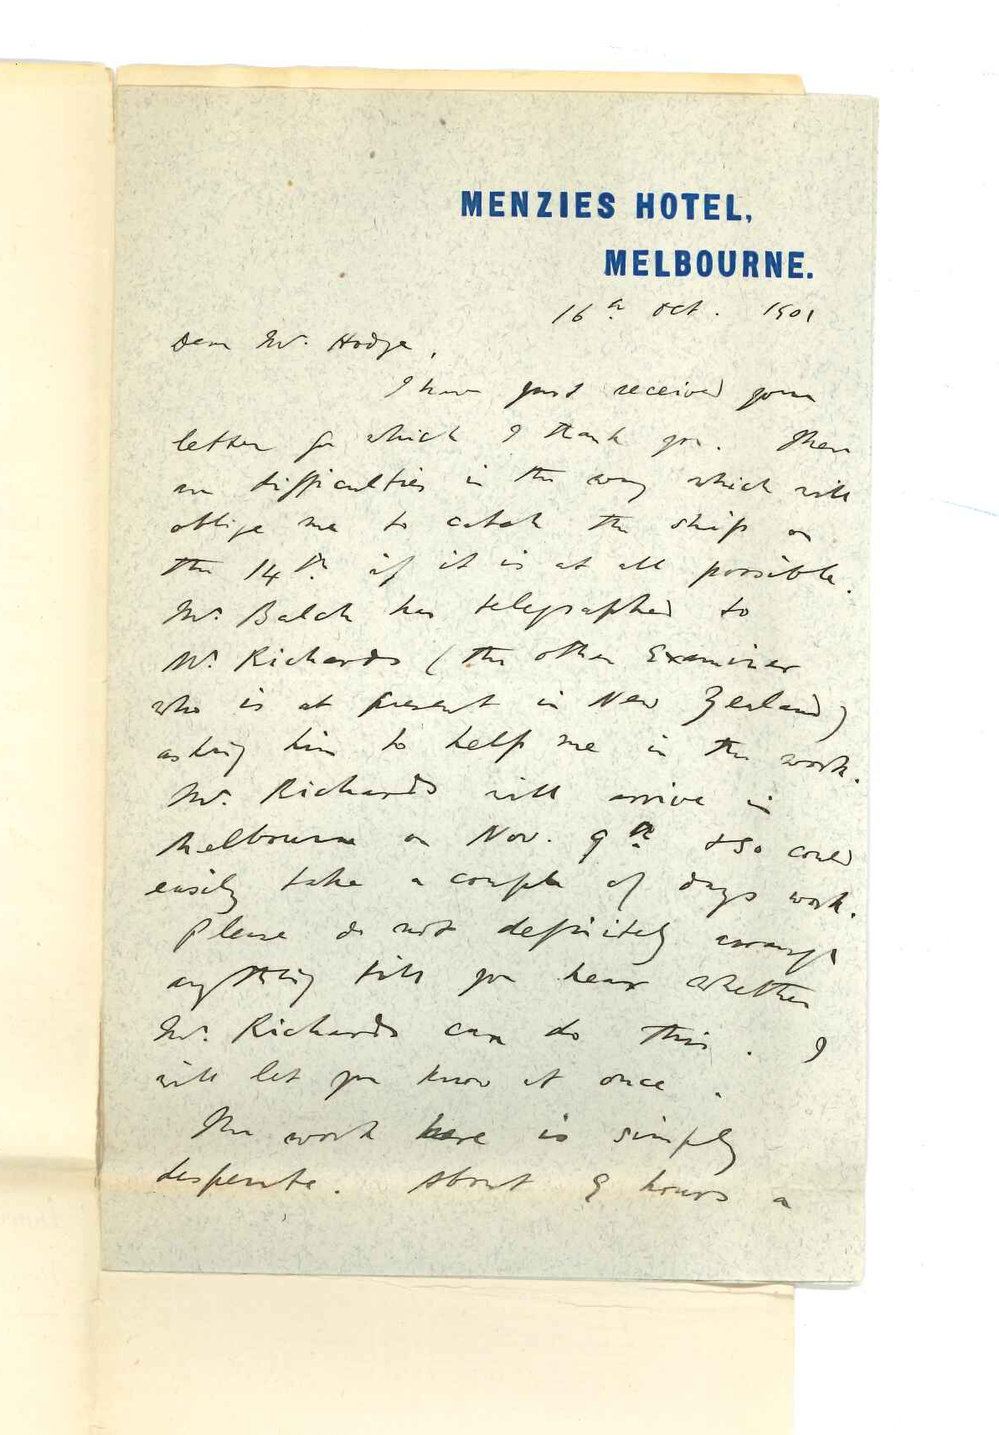 MENZIES HOTEL,
MELBOURNE.
16th Oct. 1901
Dear Mr. Hodge,
I have just received your
letter for which I thank you. There
are difficulties in the way which will
oblige me to catch the ship on
the 14th if it is at all possible.
Mr. Balch has telegraphed to
Mr. Richards (the other Examiner
who is at present in New Zealand)
asking him to help me in the work.
Mr. Richards will arrive in
Melbourne on Nov. 9th & so could
easily take a couple of days work.
Please do not definitely arrange
anything till you hear whether
Mr. Richards can do this. I
will let you know at once.
The work here is simply
desperate. About 9 hours a